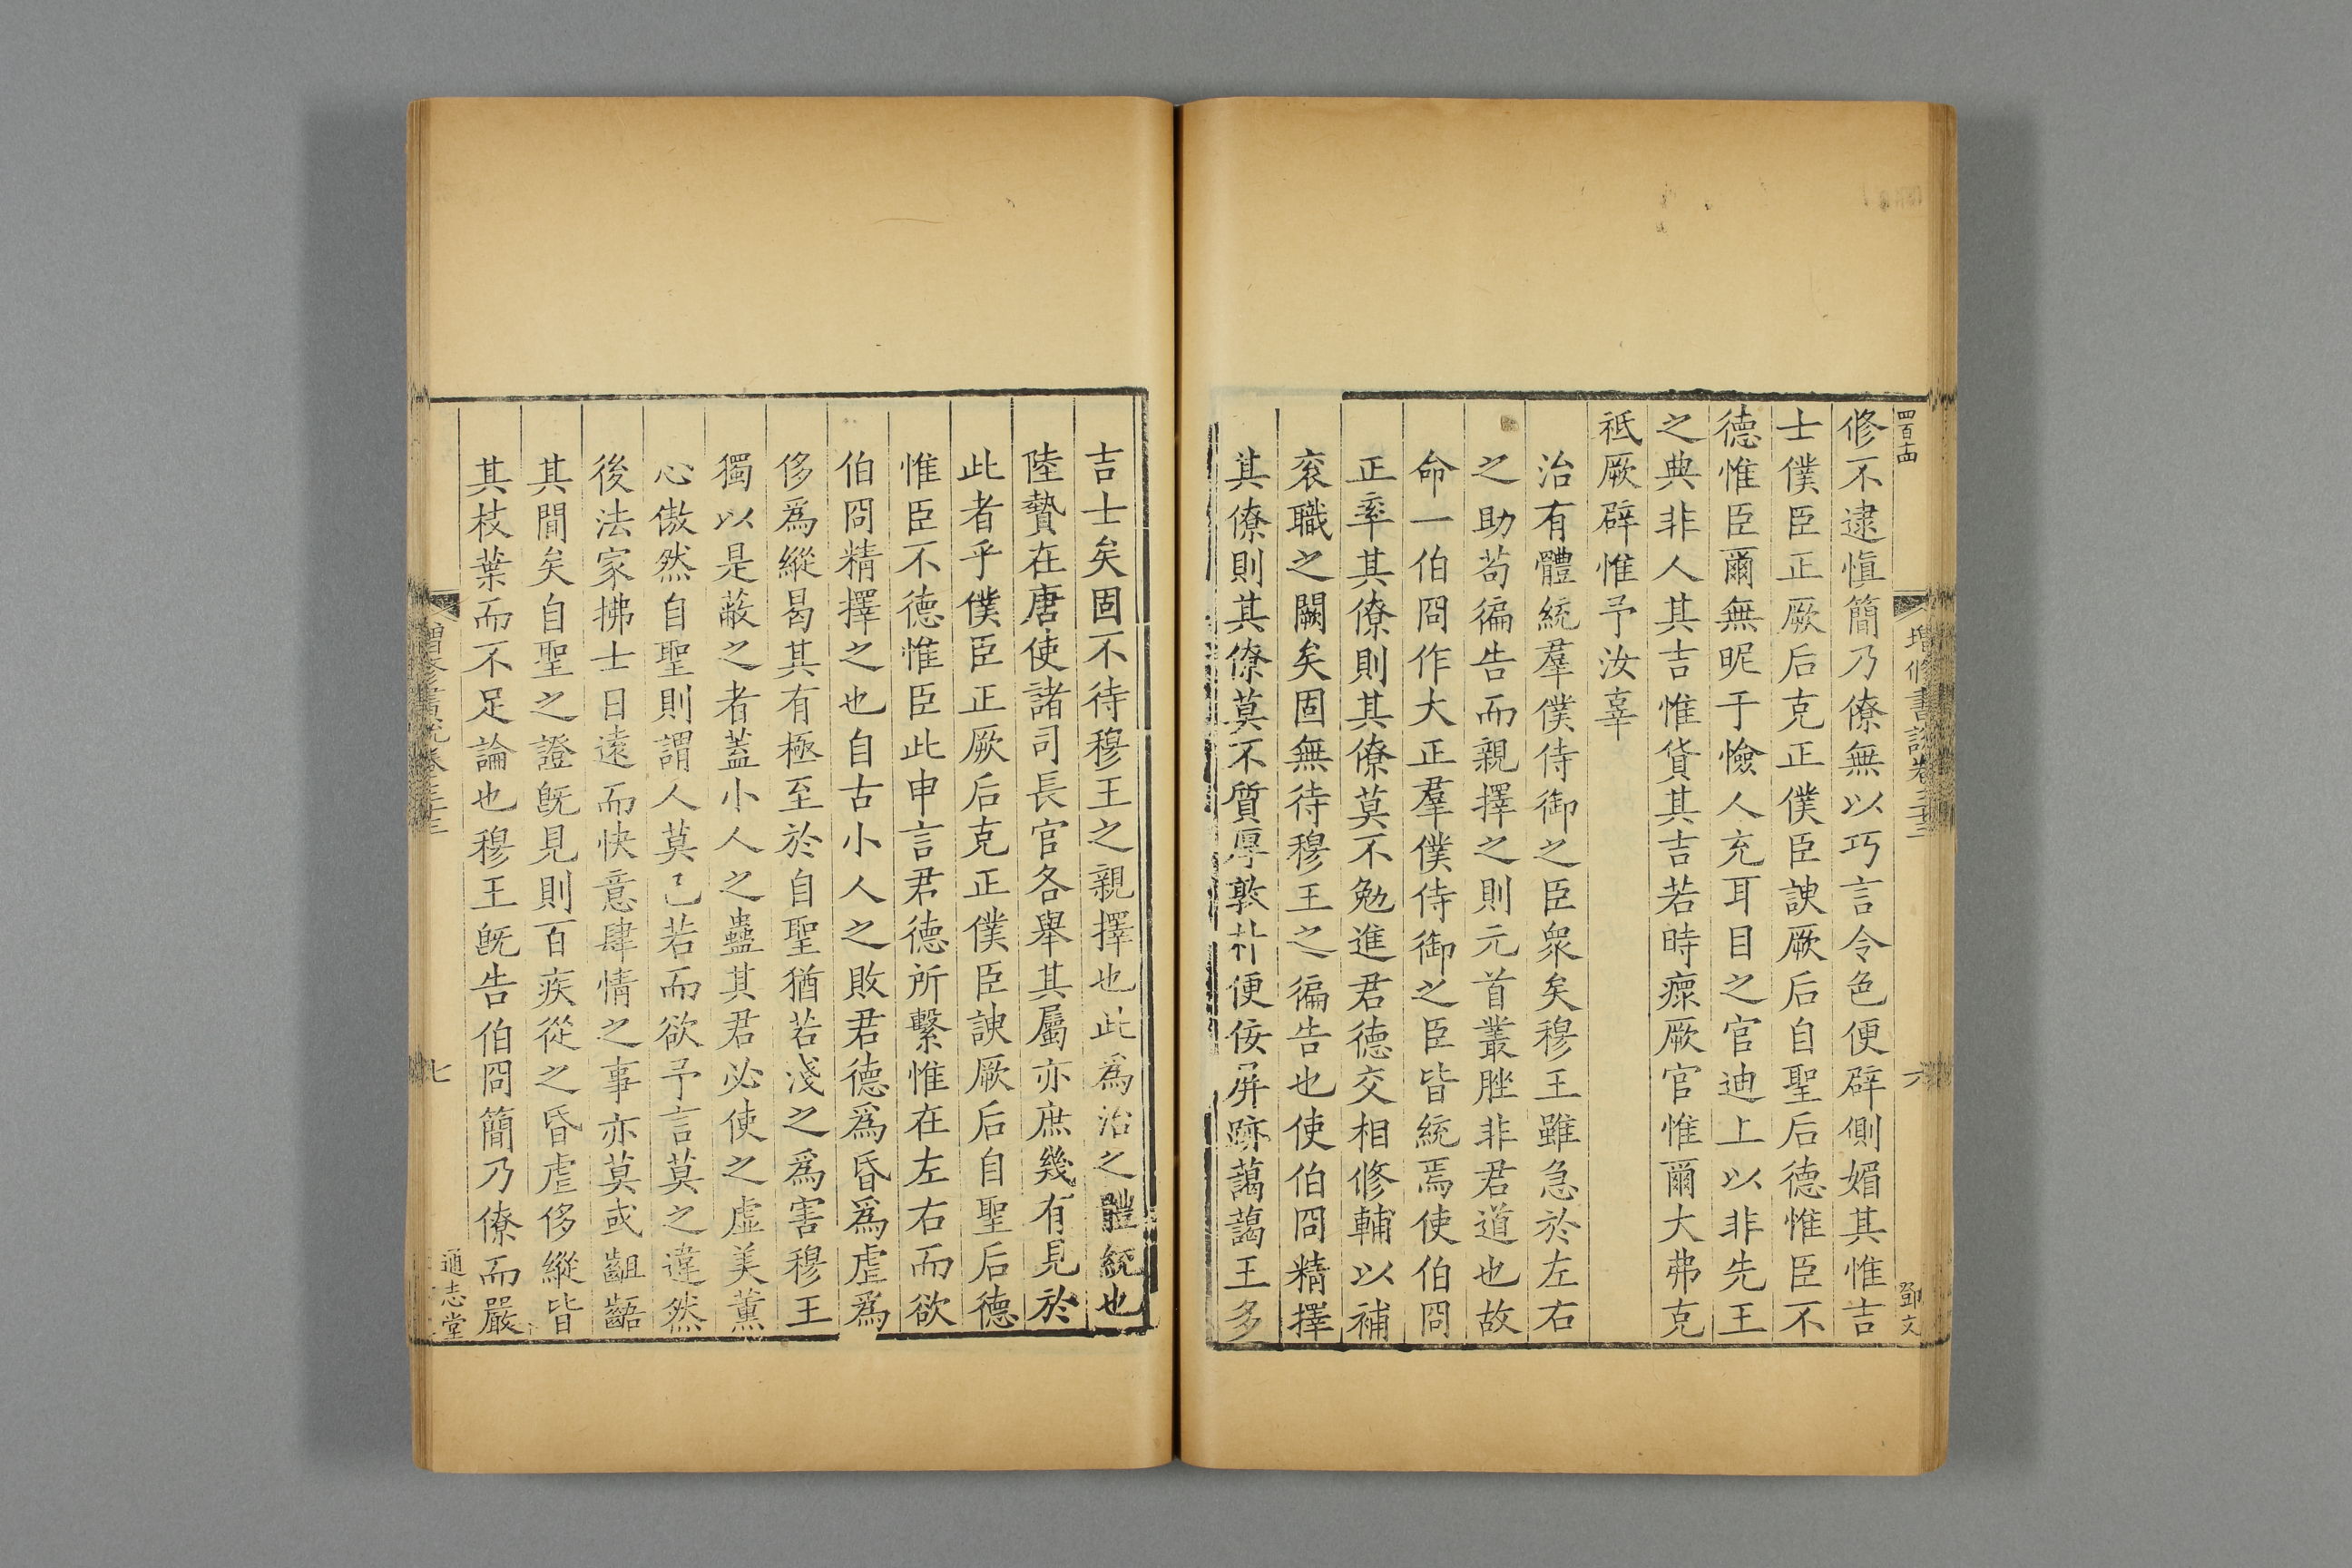 四百十四
增修書說卷三十三
六
鄧文
修不逮愼簡乃僚無以巧言令色便辟側媚其惟吉
士僕臣正厥后克正僕臣諛厥后自聖后德惟臣不
德惟臣爾無昵于憸人充耳目之官迪上以非先王
之典非人其吉惟貨其吉若時瘝厥官惟爾大弗克
祗厥辟惟予汝辜
治有體統羣僕侍御之臣衆矣穆王雖急於左右
之助苟徧告而親擇之則元首叢脞非君道也故
命一伯冏作大正羣僕侍御之臣皆統焉使伯冏
正率其僚則其僚莫不勉進君德交相修輔以補
衮職之闕矣固無待穆王之徧告也使伯冏精擇
其僚則其僚莫不質厚敦朴便佞屏跡藹藹王多
吉士矣固不待穆王之親擇也此爲治之體統也
陸贄在唐使諸司長官各舉其屬亦庶幾有見於
此者乎僕臣正厥后克正僕臣諛厥后自聖后德
惟臣不德惟臣此申言君德所繫惟在左右而欲
伯冏精擇之也自古小人之敗君德爲昏爲虐爲
侈爲縱曷其有極至於自聖猶若淺之爲害穆王
獨以是蔽之者蓋小人之蠱其君必使之虛美薰
心傲然自聖則謂人莫己若而欲予言莫之違然
後法家拂士日遠而快意肆情之事亦莫或齟齬
其閒矣自聖之證旣見則百疾從之昏虐侈縱皆
其枝葉而不足論也穆王旣告伯冏簡乃僚而嚴
增修書說卷三十三
七
通志堂